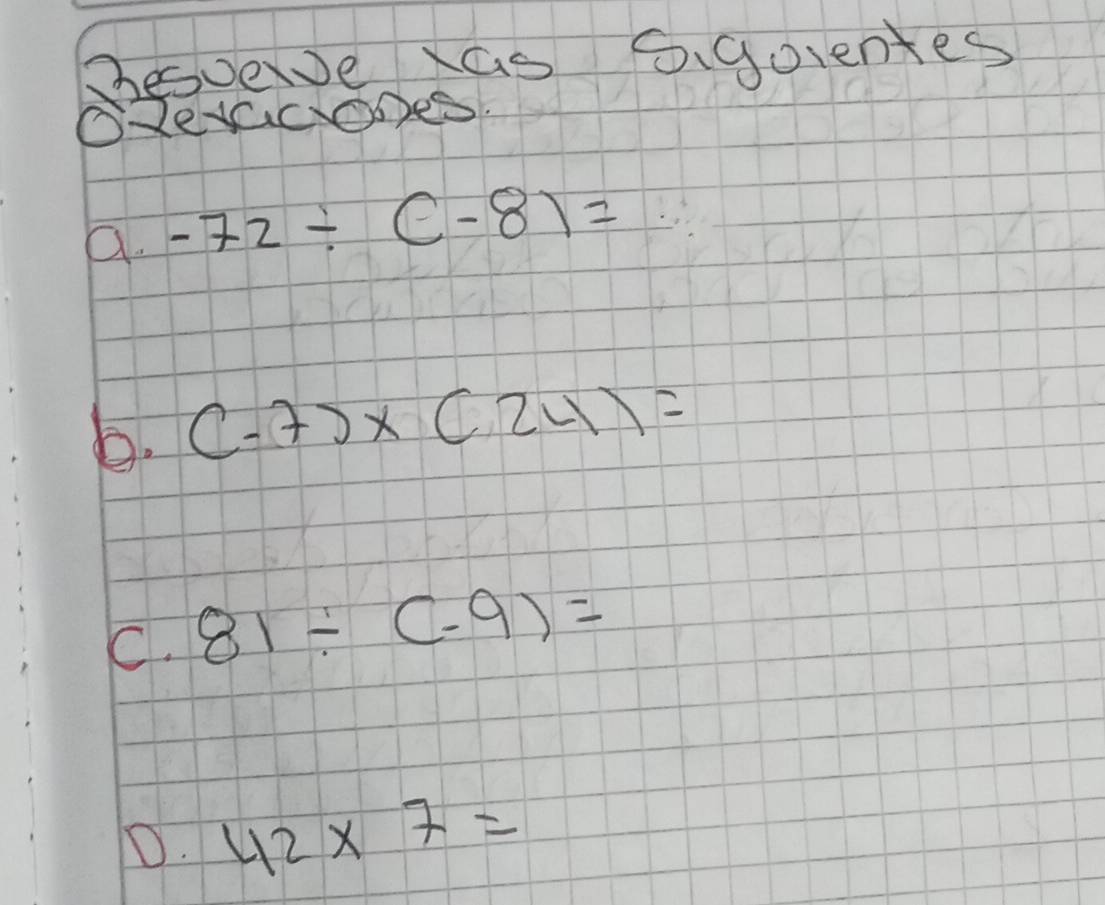 Resuelve las Siguientes
Operaciones.
a. -72 ÷ (-8) =
b. (-7) x (24) =
c. 81 ÷ (-9) =
D. 42 x 7 =